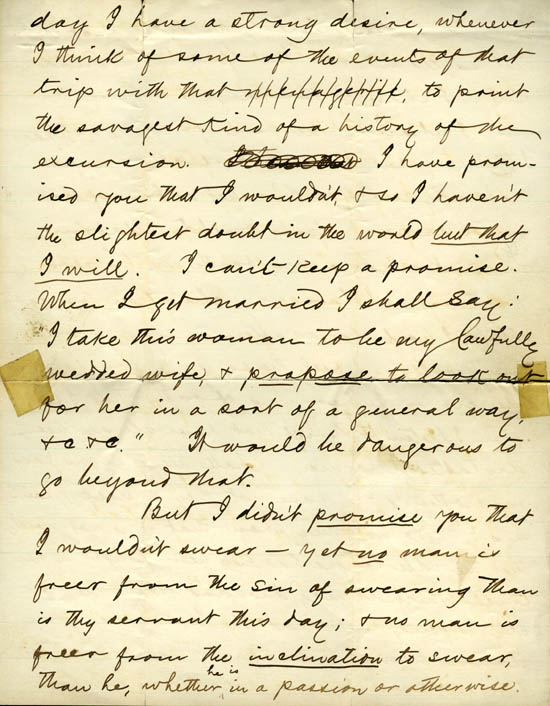 day I have a strong desire, whenever
I think of some of the events of that
trip with that to print
the savagest kind of a history of the
excursion. I have prom-
ised you that I wouldn't, & so I haven't
the slightest doubt in the world but that
I will. I can't keep a promise.
When I get married I shall say:
"I take this woman to be my lawfully
wedded wife, & propose to look out
for her in a sort of a general way,
&c &c." It would be dangerous to
go beyond that.
But I didn't promise you that
I wouldn't swear — yet no man is
freer from the sin of swearing than
is thy servant this day; & no man is
freer from the inclination to swear,
than he, whether he is in a passion or otherwise.